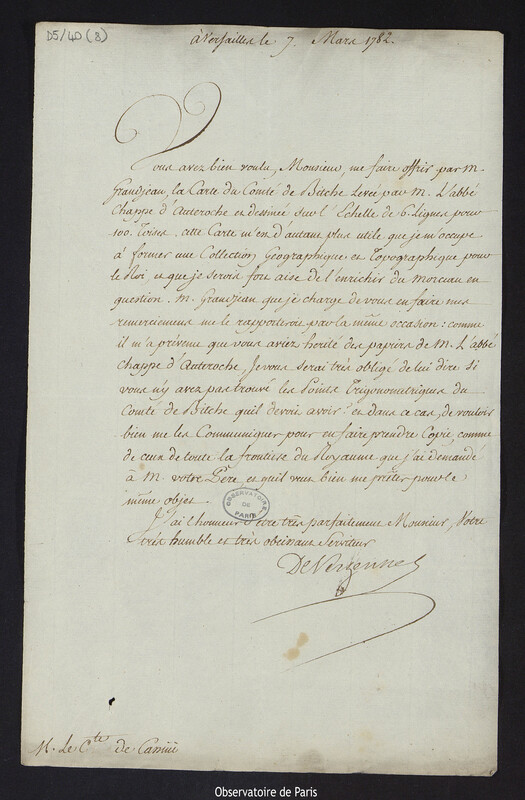 D5/40 (8)
à Versailles le 7. Mars 1782.
Vous avez bien voulu, Monsieur, me faire offrir par M.
Grandjean, la Carte du Comté de Bitche Levée par M. L'abbé
Chappe d'Auteroche et dessinée sur l'Echelle de 6. Lignes pour
100. Toises. cette Carte m'en d'autant plus utile que je m'occupe
à former une Collection Geographique et Topographique pour
le Roi et que je serois fort aise de l'enrichir du morceau en
question. M. Grandjean que je charge de vous en faire mes
remerciemens me le rapporteroit par la même occasion: comme
il m'a prévenu que vous aviez herité des papiers de M. L'abbé
Chappe d'Auteroche, Je vous serai très obligé de lui dire si
vous n'y avez pas trouvé les Points Trigonometriques du
Comté de Bitche quil devoit avoir? et dans ce cas, de vouloir
bien me les Communiquer pour en faire prendre Copie, comme
de ceux de toute la frontiere du Royaume que j'ai demandé
à M. votre Pere, et quil veut bien me prêter pour le
même objet.
J'ai l'honneur d'etre très parfaitement Monsieur, Votre
très humble et très obeissant Serviteur
De Vergennes
OBSERVATOIRE
DE
PARIS
M. Le Cte de Cassini
Observatoire de Paris